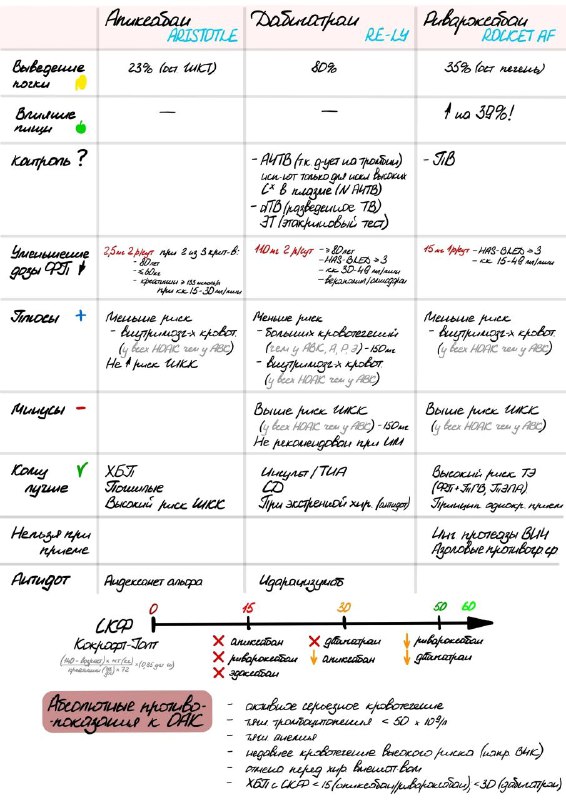 Апиксабан Дабигатран Ривароксабан
ARISTOTLE RE-LY ROCKET AF
Выведение почки 23% (ост ЖКТ) 80% 35% (ост печень)
Влияние пищи — — ↑ на 39%!
Контроль ? - АЧТВ (тк д-ует на тромбин) - ПВ
исп-ют только для искл высоких
Сх в плазме (N АЧТВ)
- дТВ (разведенное ТВ)
ЭТ (экариновый тест)
Уменьшение дозы ФП ↓ 2,5 мг 2 р/сут при 2 из 3 крит-в: 110 мг 2 р/сут - >80 лет 15 мг 1 р/сут - HAS-BLED ≥ 3
- 80 лет - HAS-BLED ≥ 3 - кк 15-49 мл/мин
- ≤ 60 кг - кк 30-49 мл/мин
- креатинин ≥ 133 мкмоль/л - верапамил/амиодарон
при кк 15-30 мл/мин
Плюсы + Меньше риск Меньше риск Меньше риск
- внутримозг-х кровот. - больших кровотечений - внутримозг-х кровот.
(у всех НОАК чем у АВК) (чем у АВК, А, Р, Э) - 150 мг (у всех НОАК чем у АВК)
Не ↑ риск ЖКК - внутримозг-х кровот.
(у всех НОАК чем у АВК)
Минусы - Выше риск ЖКК Выше риск ЖКК
(у всех НОАК чем у АВК) - 150 мг (у всех НОАК чем у АВК)
Не рекомендован при ИМ
Кому лучше ХБП Инсульт / ТИА Высокий риск ТЭ
Пожилые СД (ФП + ТГВ, ТЭЛА)
Высокий риск ЖКК При экстренной хир. (антидот) Принцип однокр. прием
Нельзя при приеме Инг протеазы ВИЧ
Азоловые противогр ср
Антидот Андексанет альфа Идаруцизумаб
0 15 30 50 60
СКФ
Кокрофт-Голт
(140 - возраст) × мт (кг)
креатинин × 72 × (0,85 для ж)
× апиксабан × дабигатран ↓ ривароксабан
× ривароксабан ↓ апиксабан ↓ дабигатран
× эдоксабан
Абсолютные противо-
-показания к ОАК
- активное серьезное кровотечение
- тяж тромбоцитопения < 50 × 10⁹/л
- тяж анемия
- недавнее кровотечение высокого риска (напр. ВЧК)
- отмена перед хир вмешат-вом
- ХБП с СКФ < 15 (апиксабан/ривароксабан), < 30 (дабигатран)